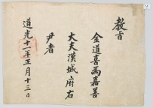 敎旨
金道喜爲嘉善
大夫漢城府右
尹者
道光十年五月十三日